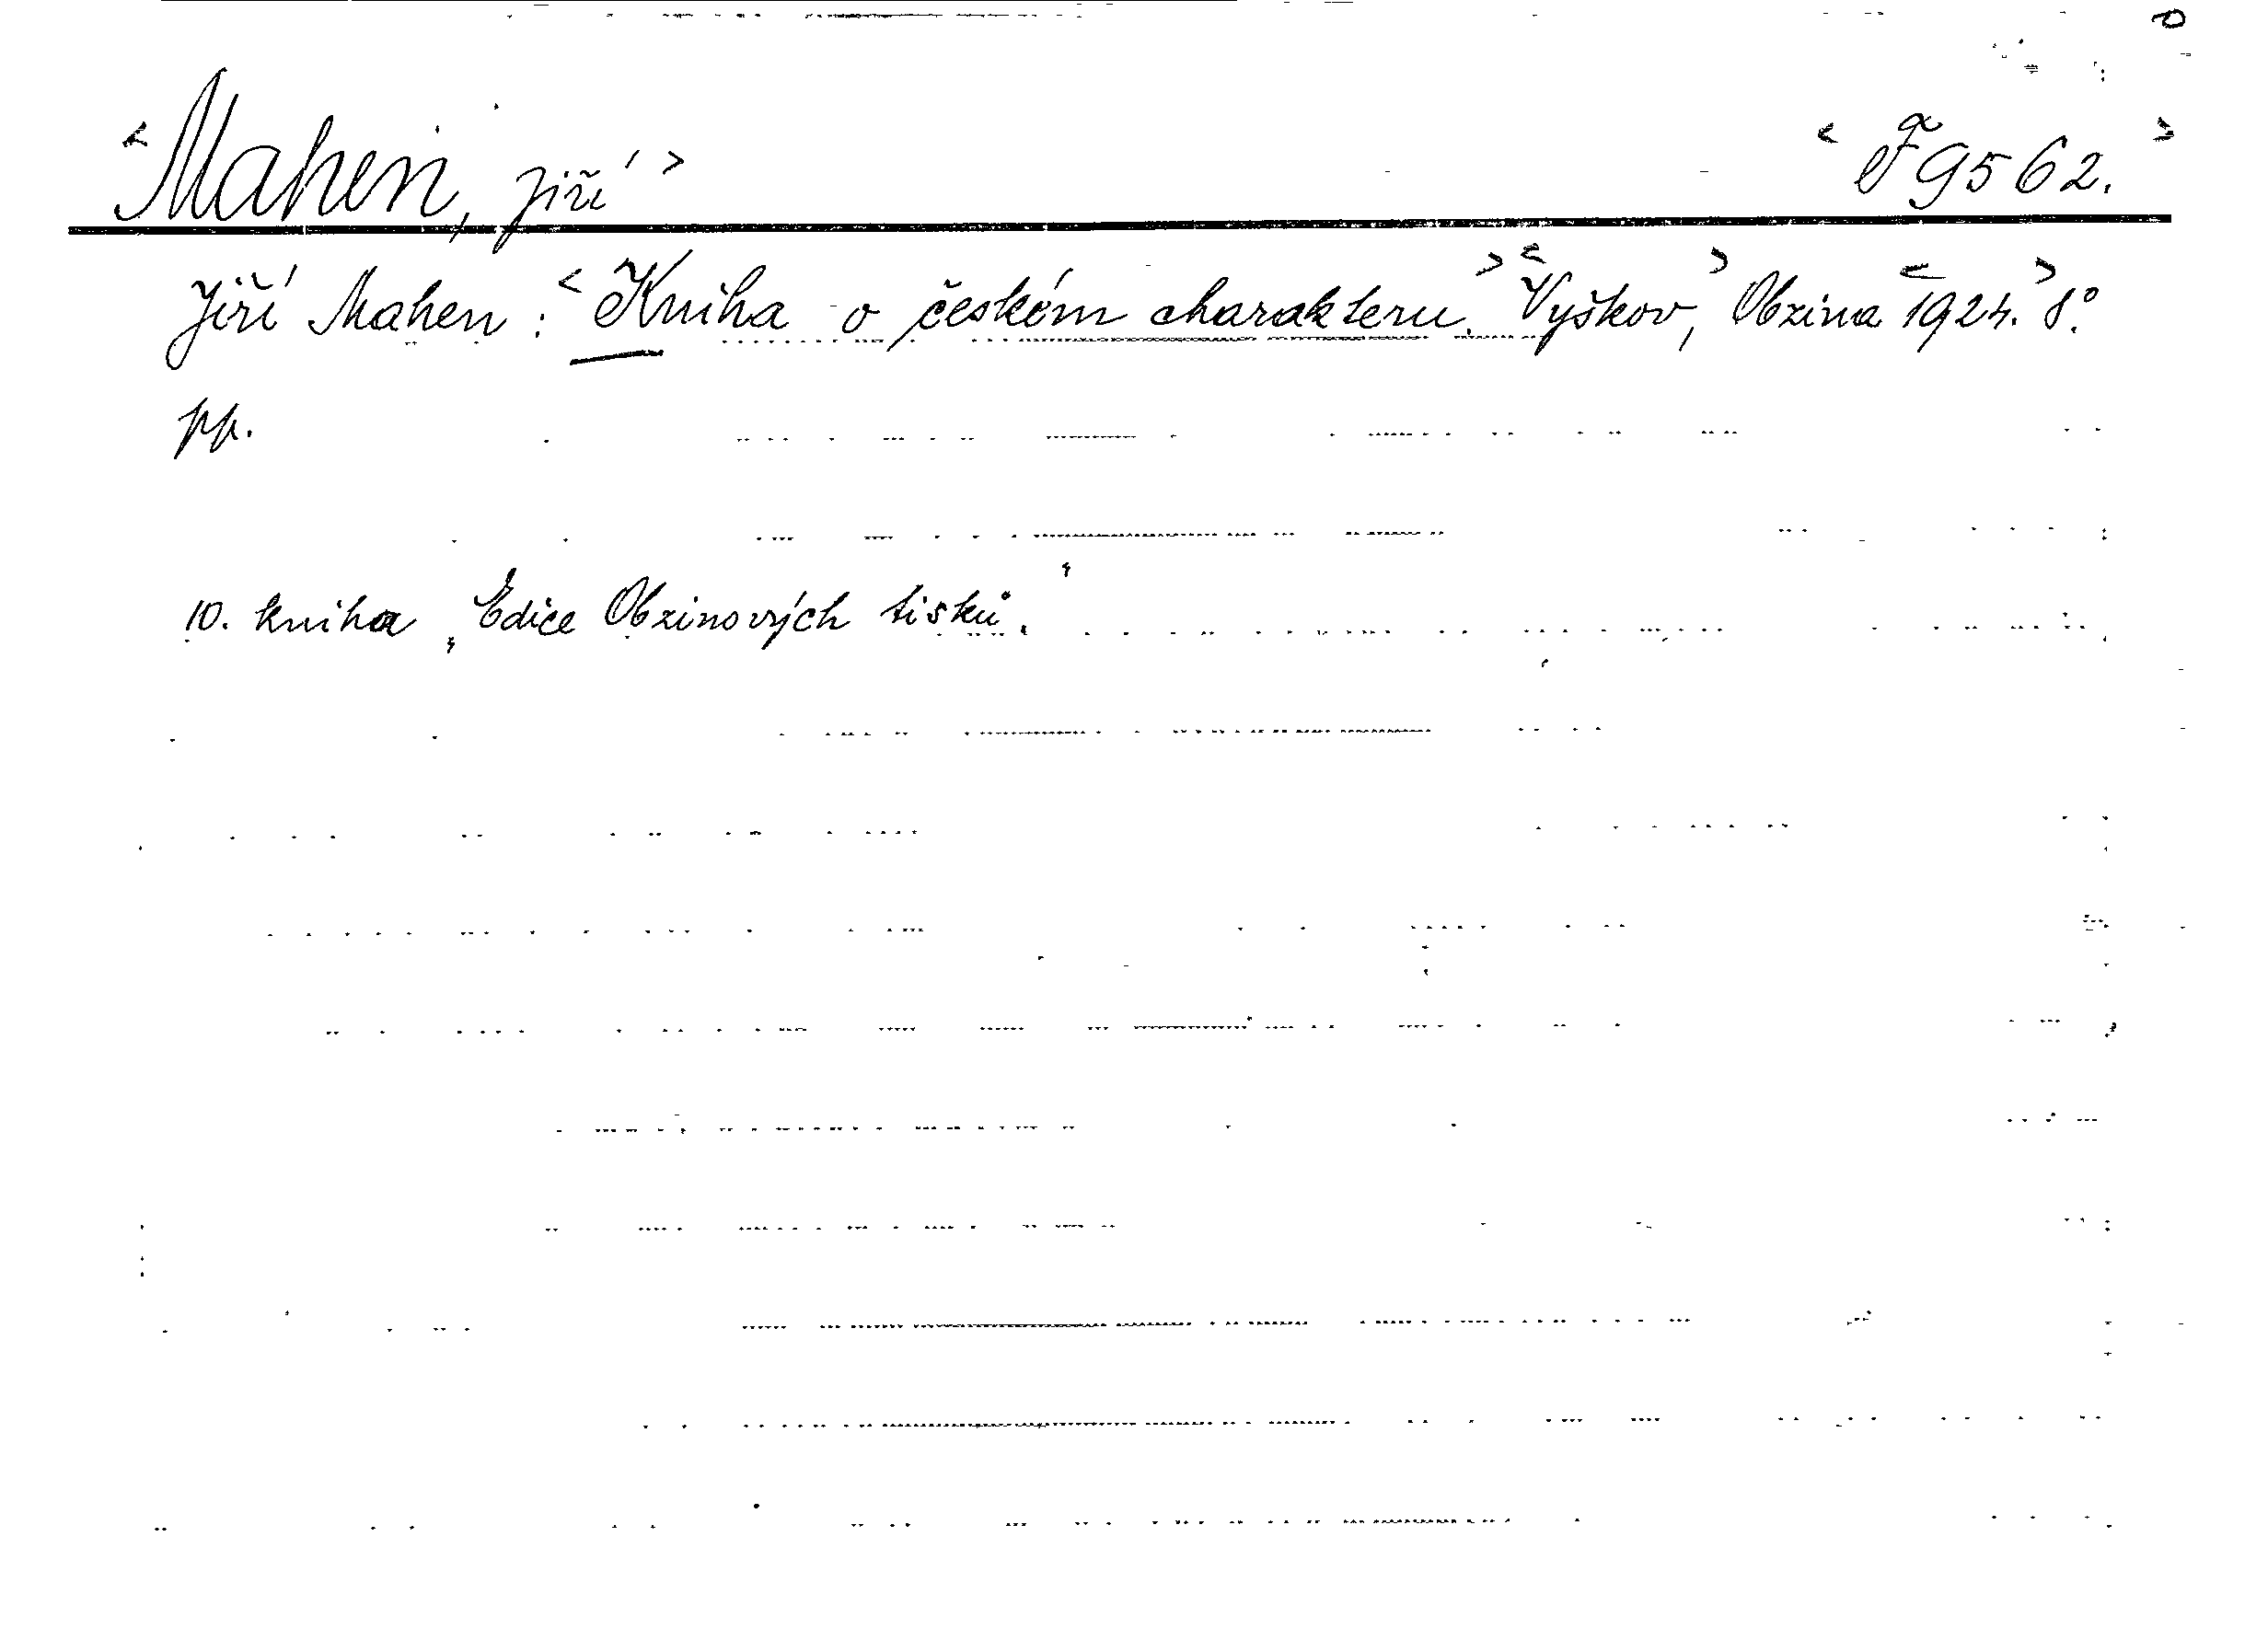 <Mahen, Jiří> <F 9562.>
Jiří Mahen: <Kniha o českém charakteru.> <Vyškov,> Obzina <1924.> 8°.
pp.
10. kniha „Edice Obzinových tisků.“